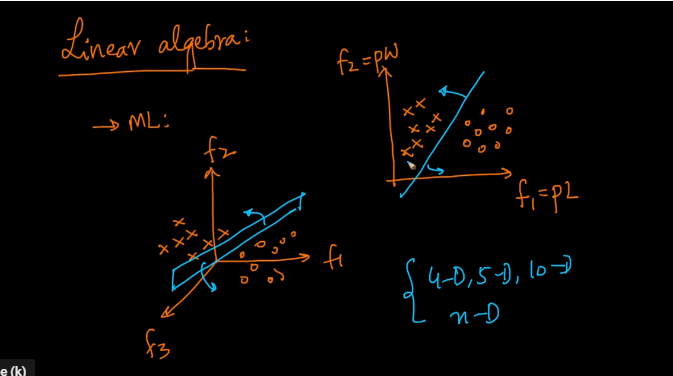 Linear algebra:
→ ML:
f2
f1
f3
f2 = PW
f1 = PL
4-D, 5-D, 10-D
n-D
e (k)